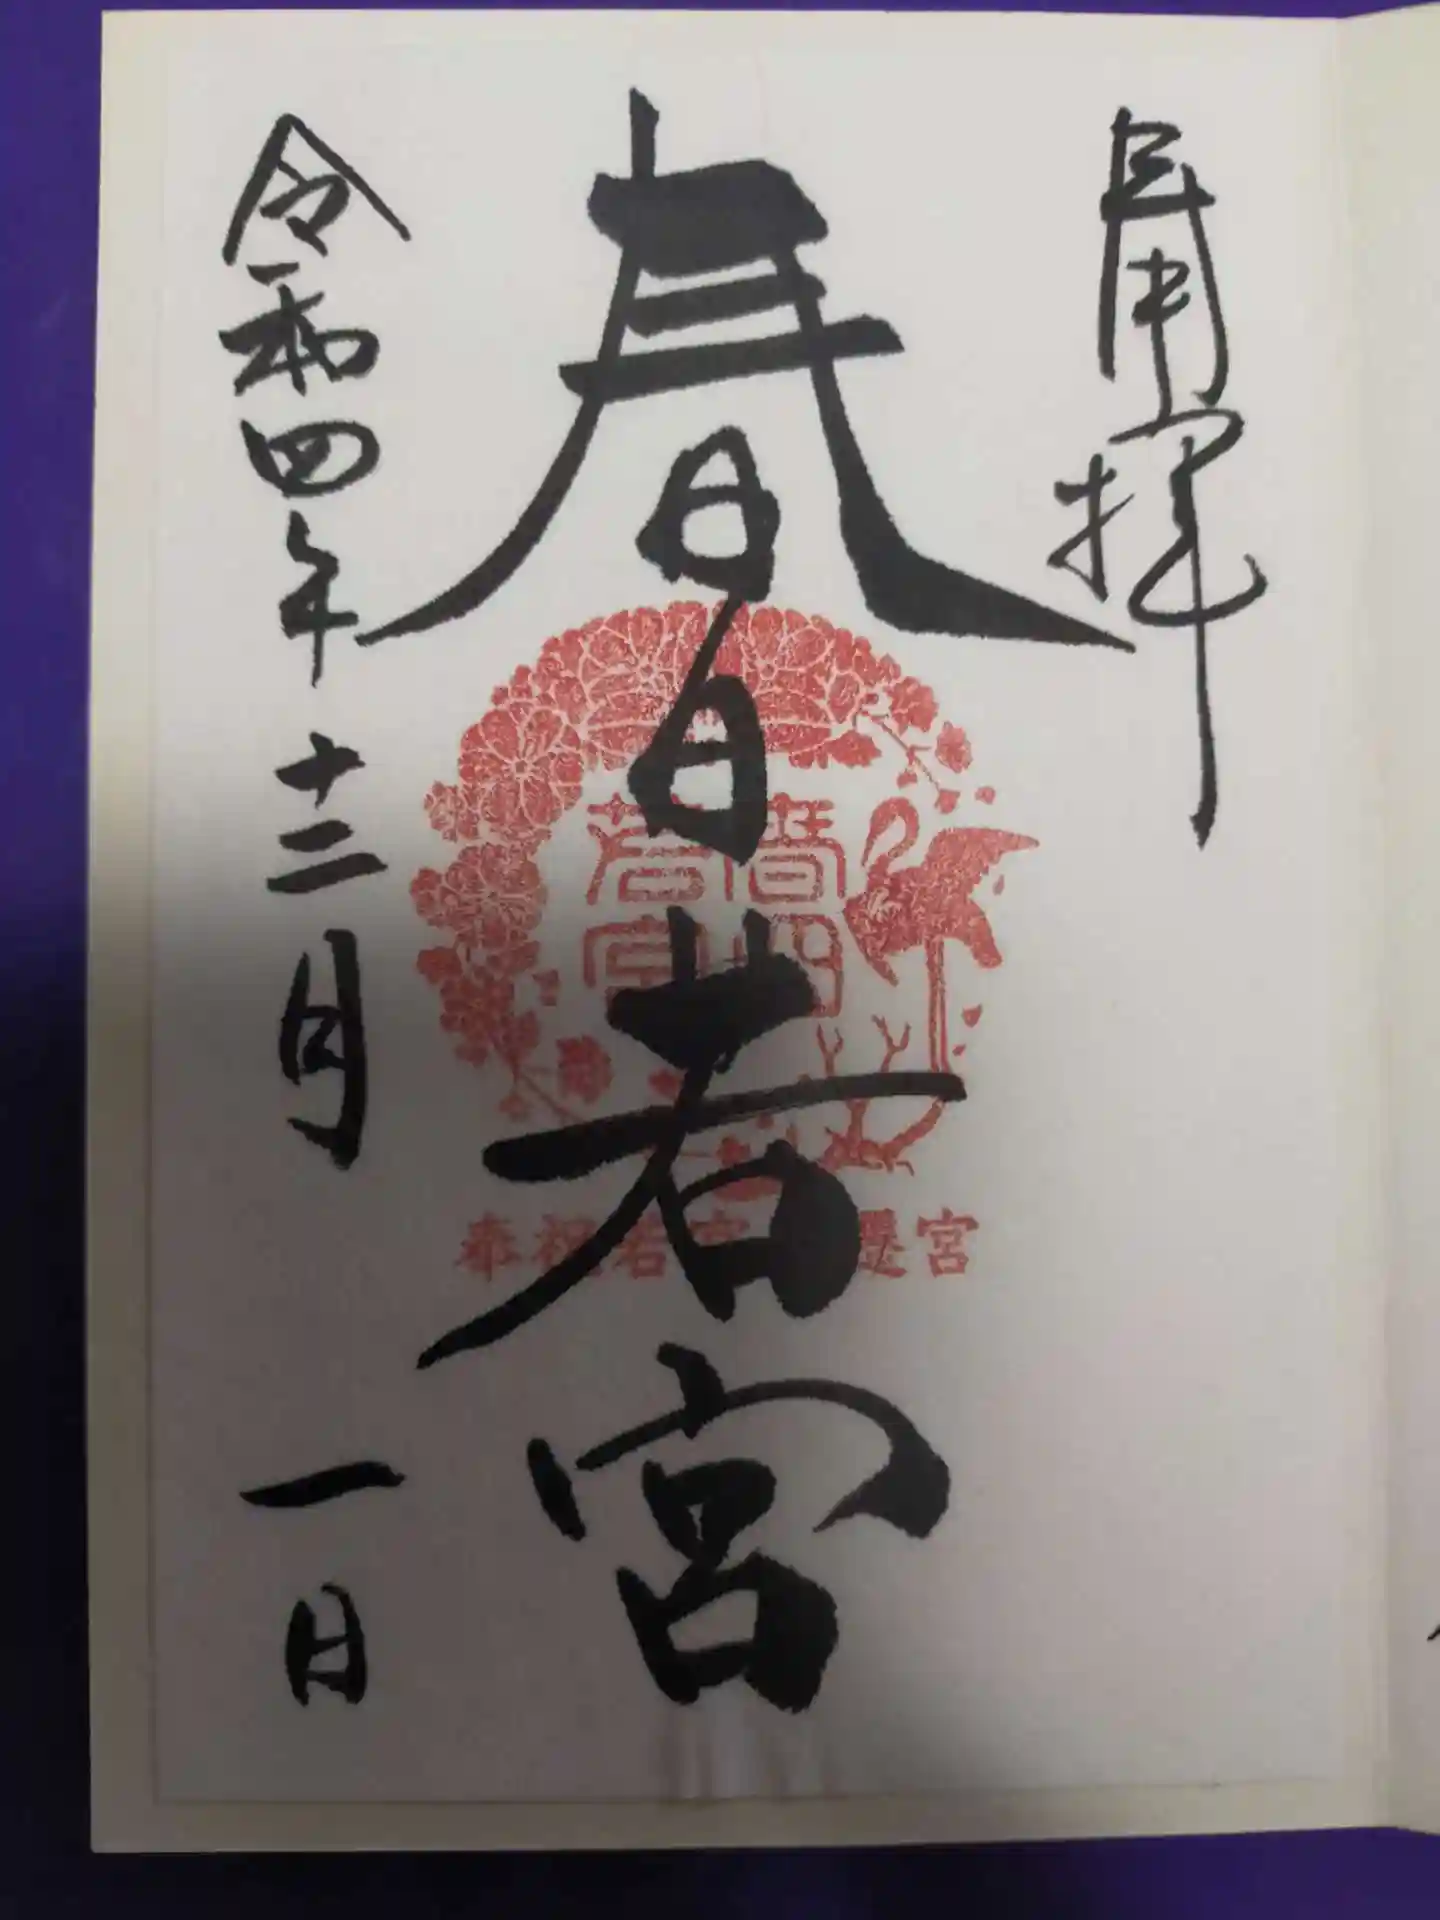 奉拝
春日
若宮
令和四年十二月一日
春日
若宮
奉祝若宮 遷宮